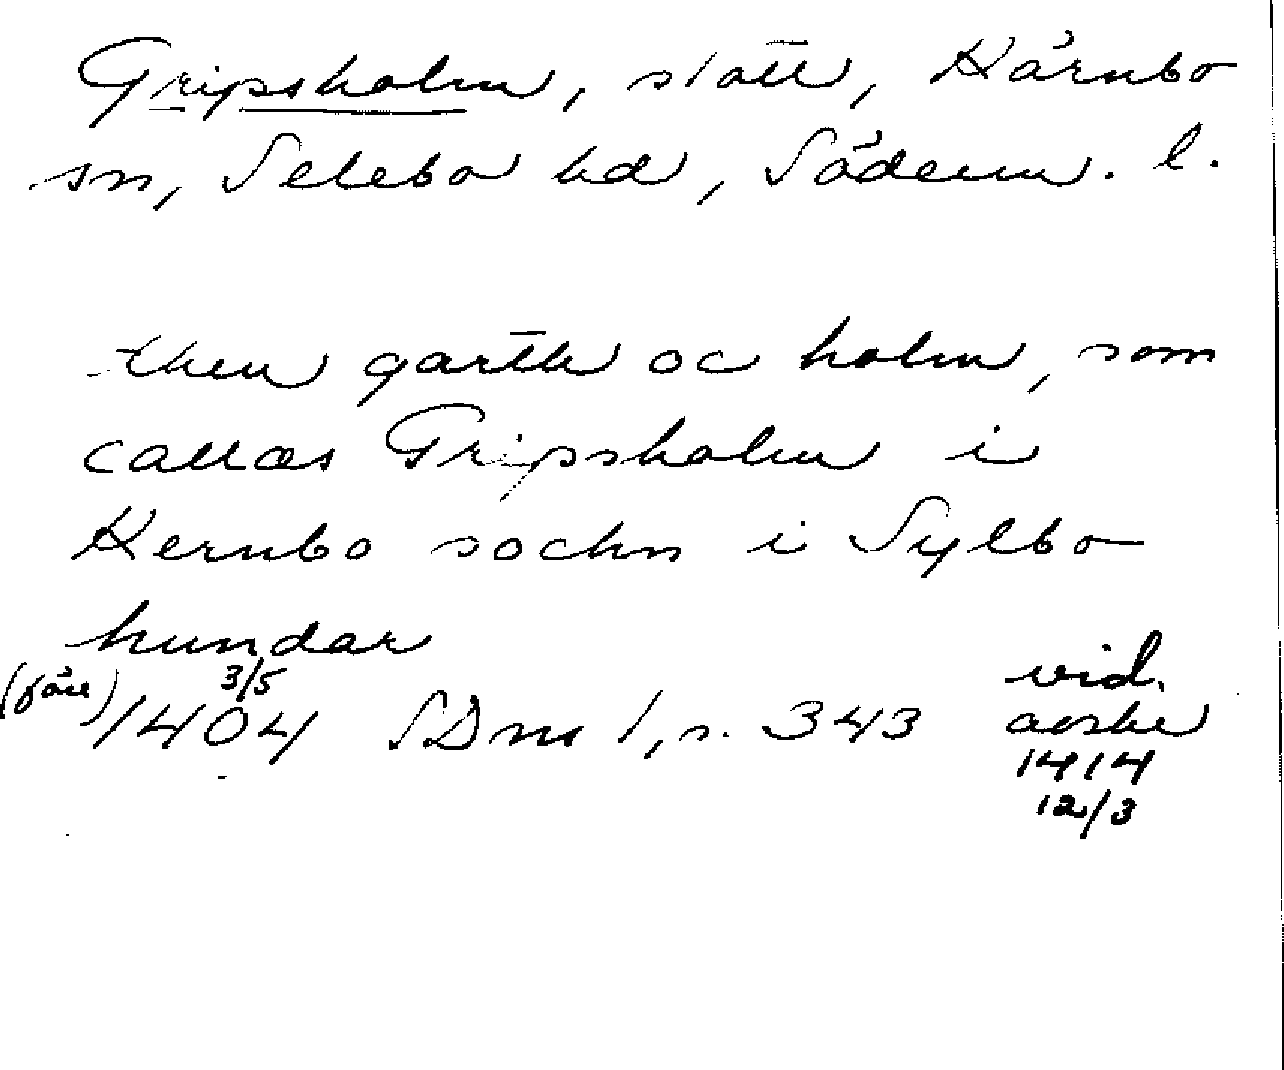 Gripsholm, slott, Kärnbo
sn, Selebo hd, Söderm. l.
then garth oc holm, som
callæs Gripsholm i
Kernbo sochn i Sylbo
hundar
(före) 1404 3/5 SDns 1, s. 343
vid.
avskr
1414
12/3